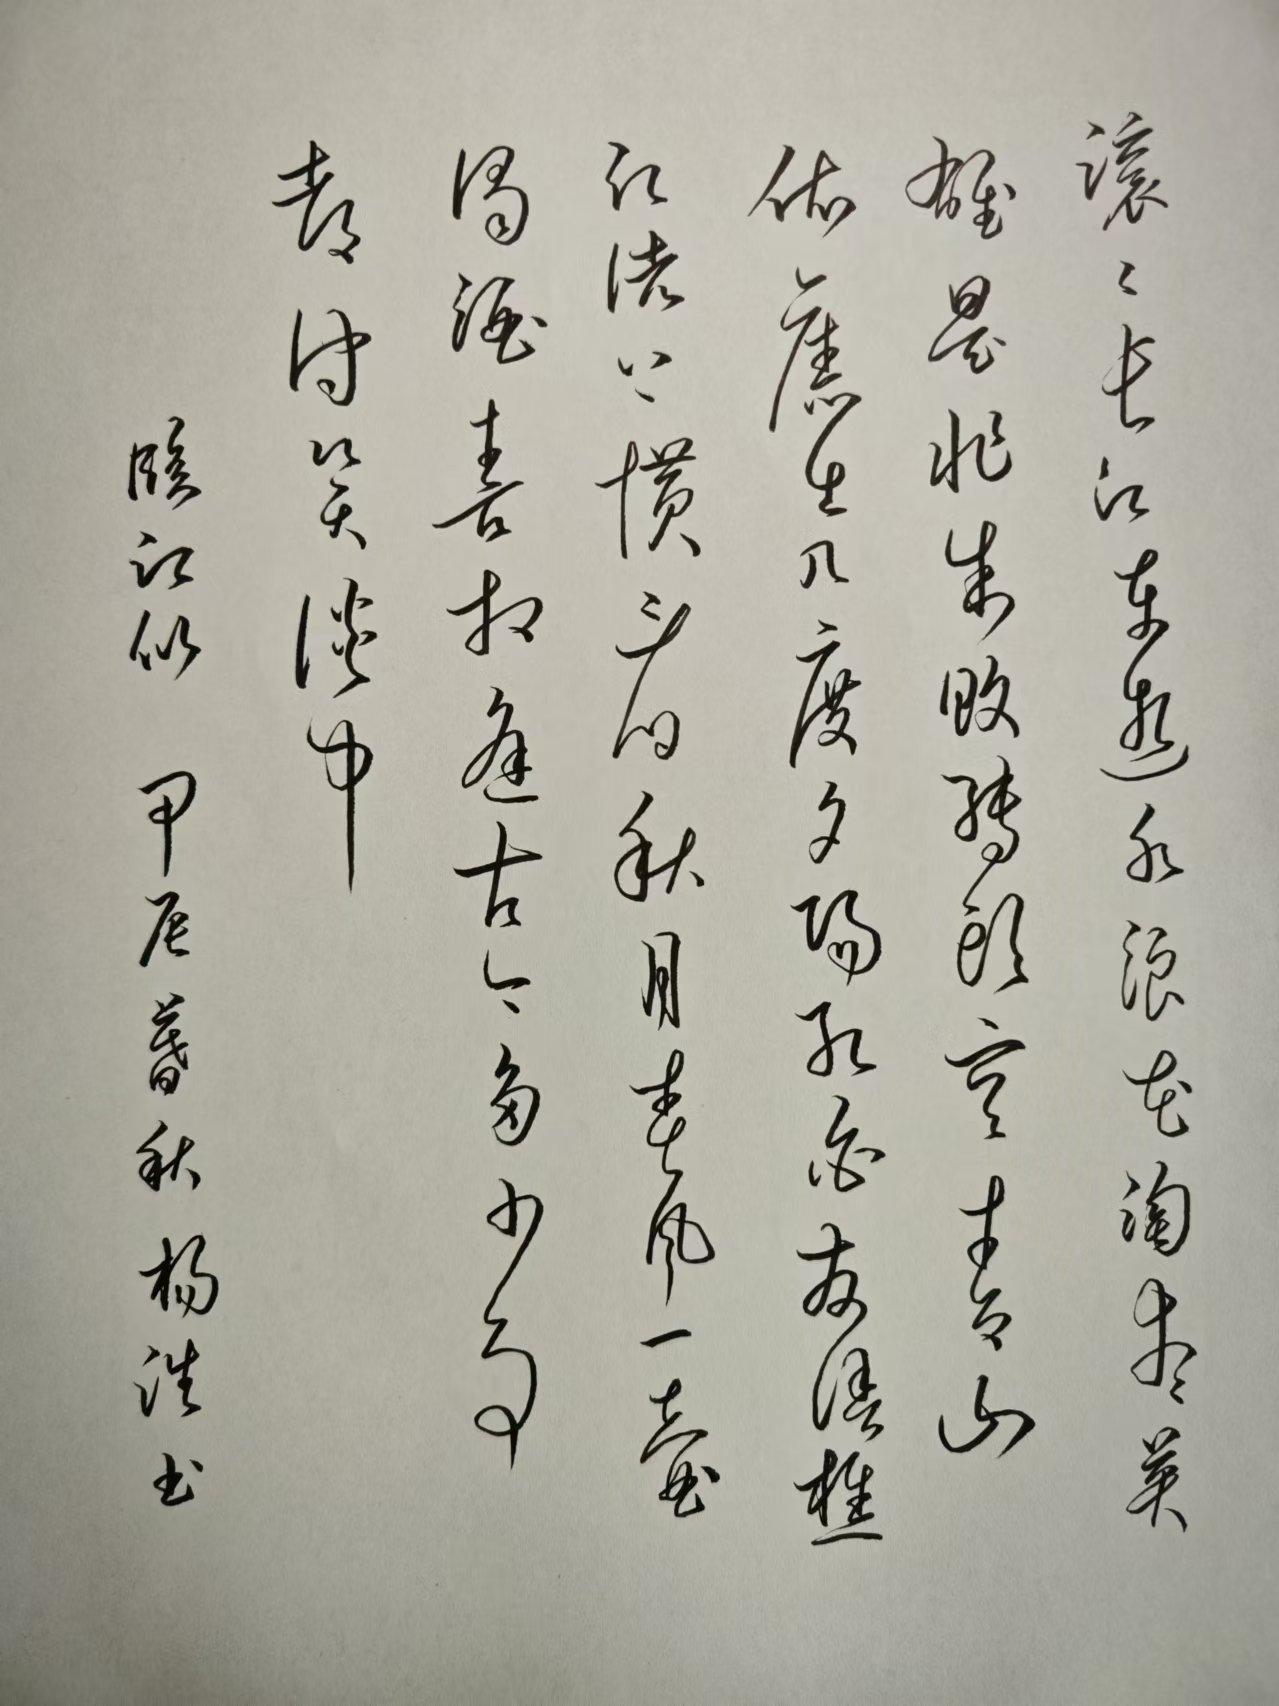 滚〻长江东逝水浪花淘尽英
雄是非成败转头空青山
依旧在几度夕阳红白发渔樵
江渚上惯看秋月春风一壶
浊酒喜相逢古今多少事
都付笑谈中
临江仙 甲辰暮秋杨浩书